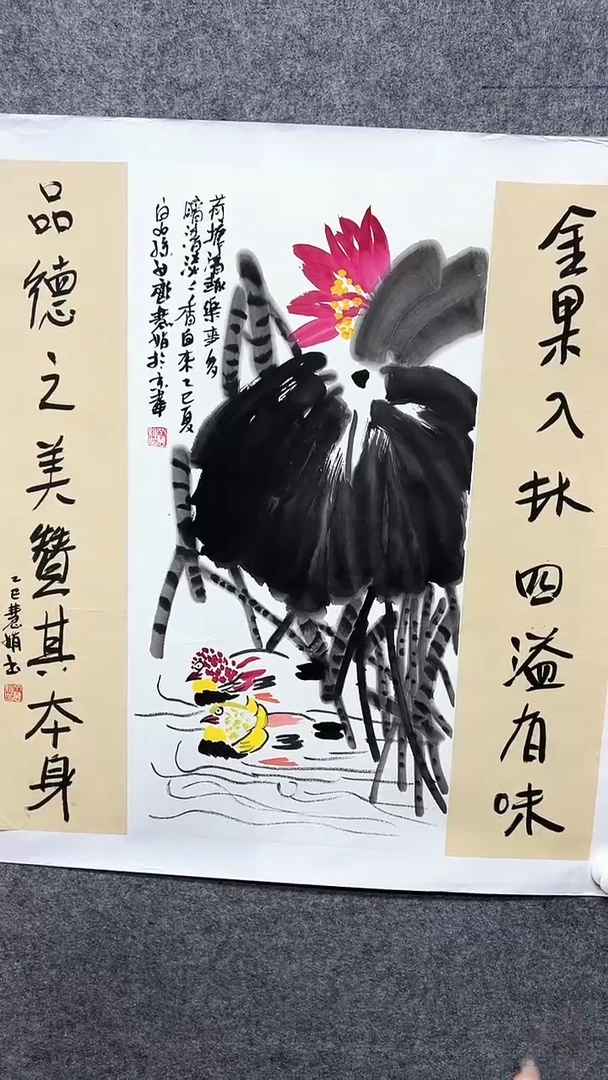 金果入林四溢有味
荷塘清趣乐事多
清淡〻香自来乙巳夏
白石孙女齐慧娟於京华
品德之美贊其本身
乙巳慧娟书